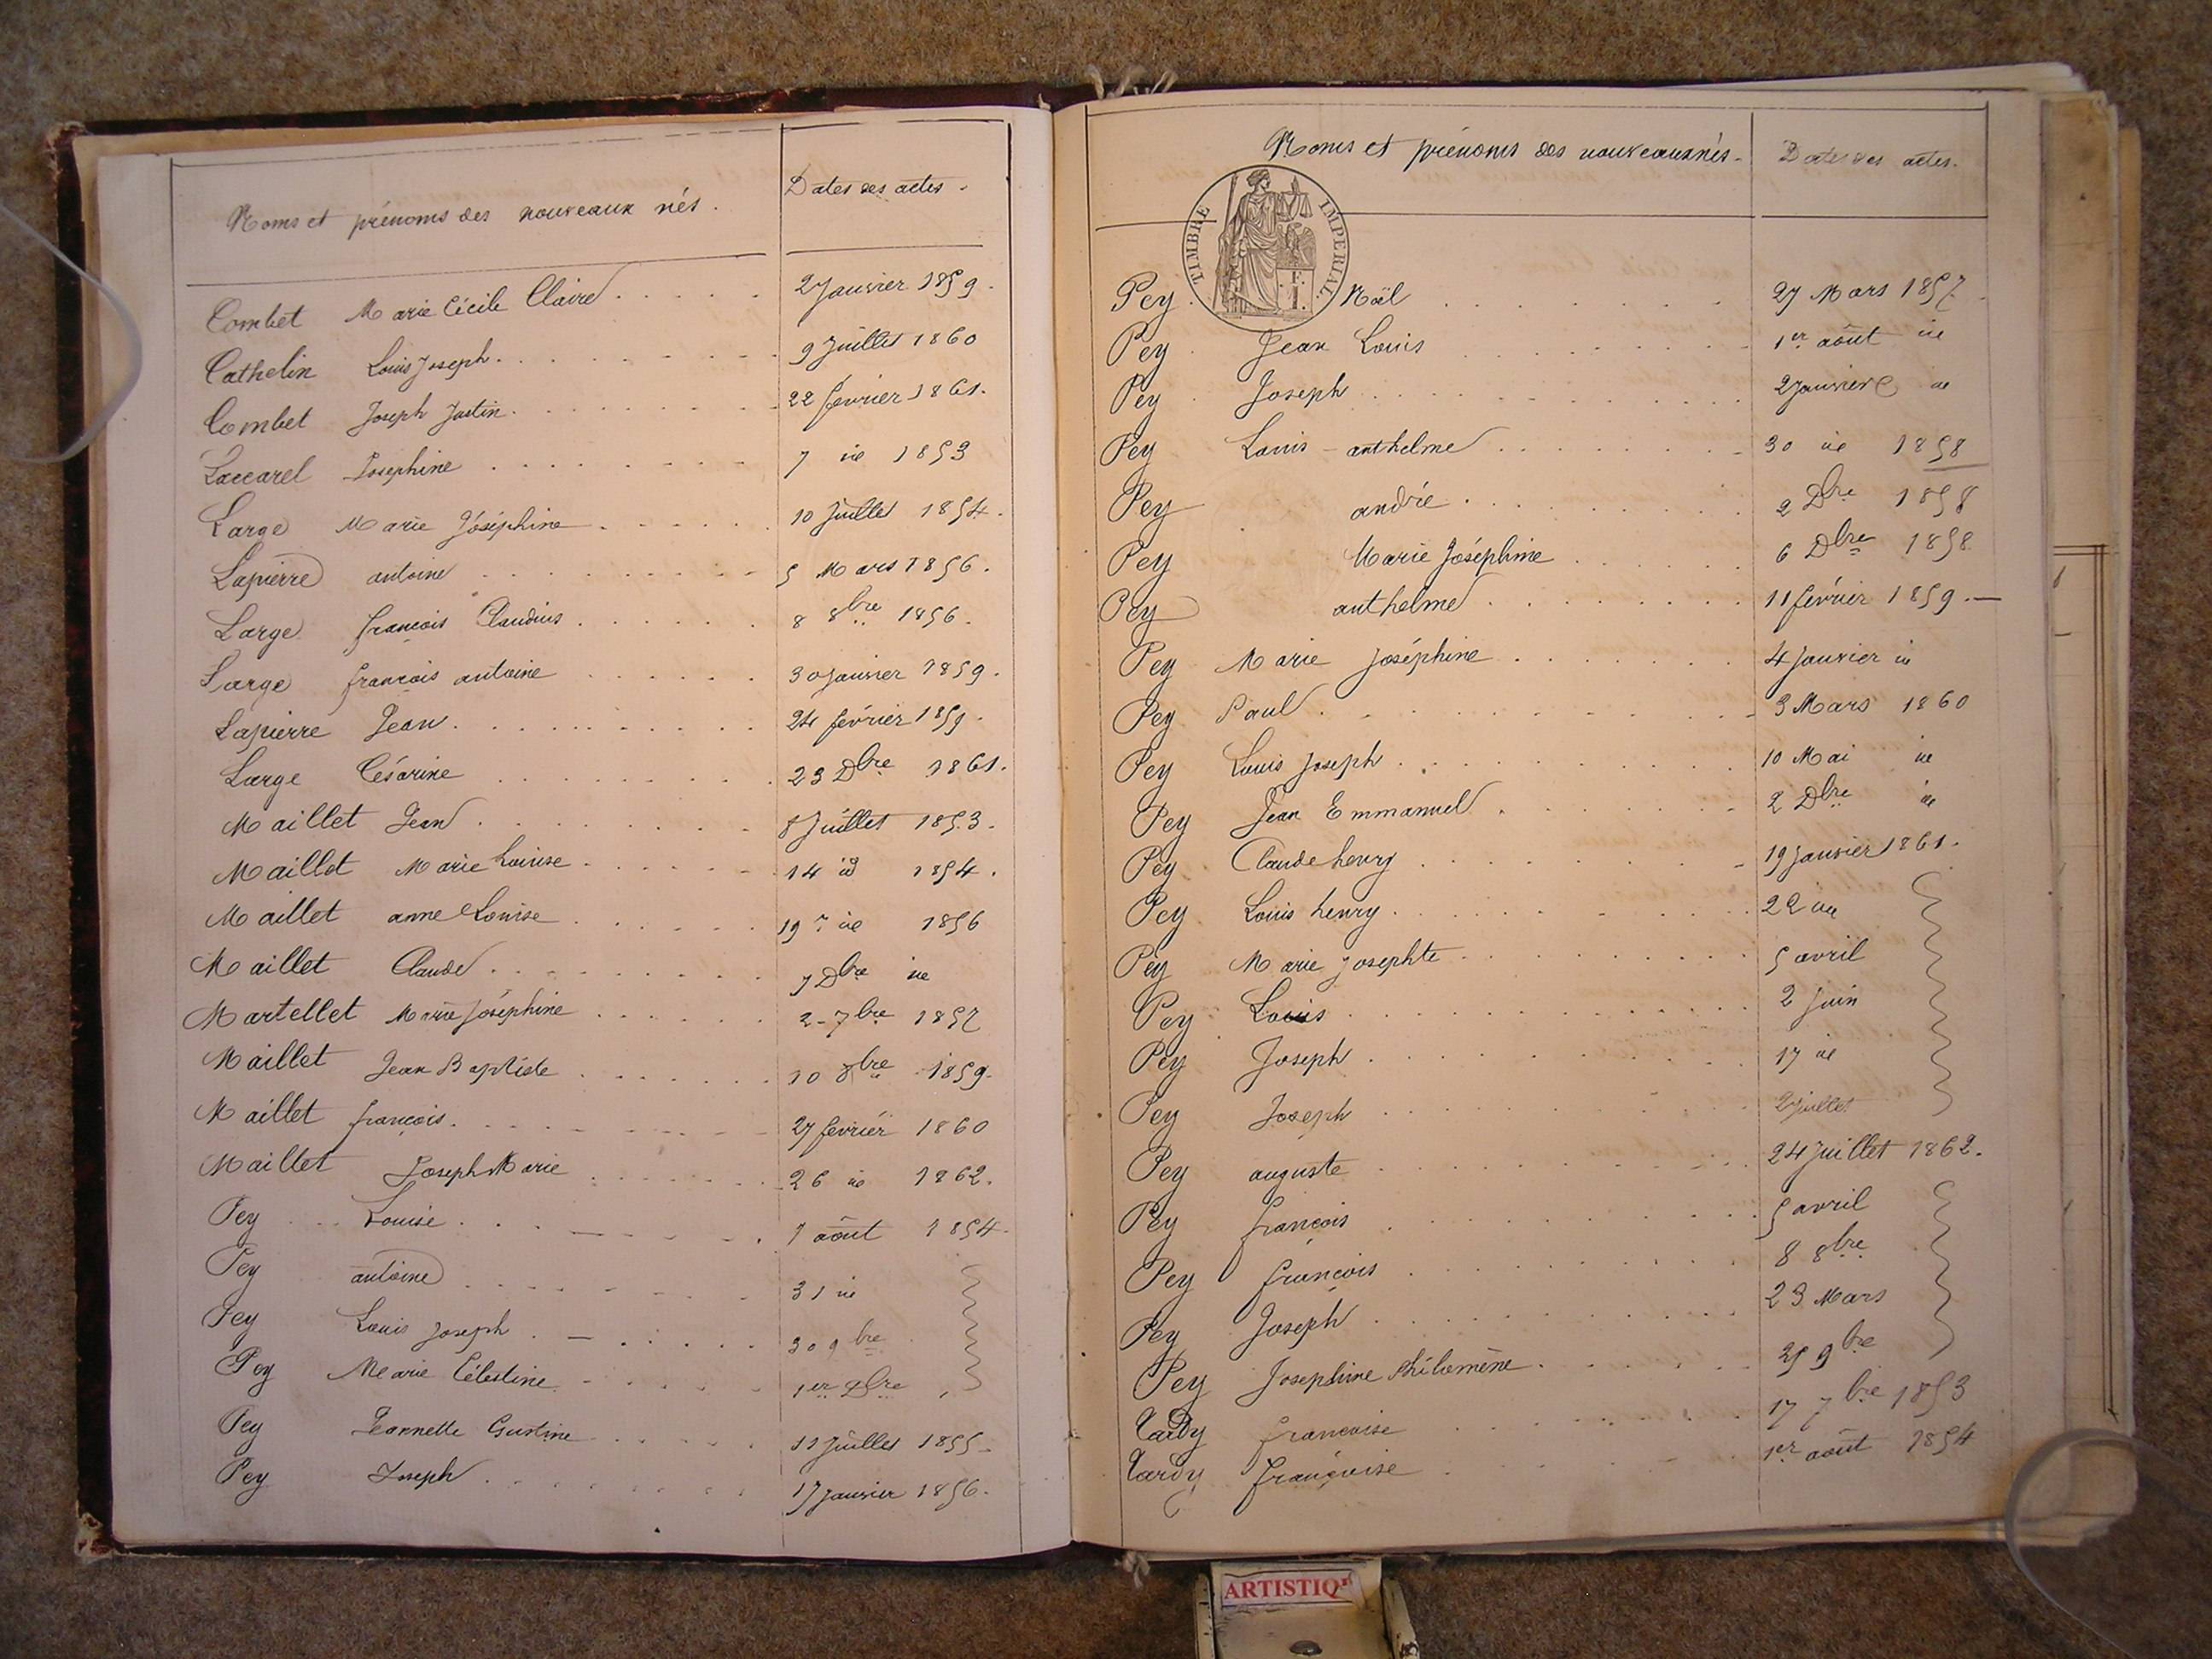 Noms et prénoms des nouveaux nés. Dates des actes.
Combet Marie Cécile Claire 2 Janvier 1859.
Cathelin Louis Joseph. 9 Juillet 1860
Combet Joseph Justin. 22 février 1861.
Laccarel Josephine 7 id 1853
Large Marie Joséphine 10 Juillet 1854.
Lapierre antoine 5 Mars 1856.
Large françois Claudius 8 8bre 1856.
Large françois antoine 30 Janvier 1859.
Lapierre Jean. 24 février 1859.
Large Césarine 23 Dbre 1861.
Maillet Jean 8 Juillet 1853.
Maillet Marie Louise 14 id 1854.
Maillet anne Louise 19 id 1856
Maillet Claude 7 Dbre id
Martellet Marie Joséphine 2 7bre 1857
Maillet Jean Baptiste 10 8bre 1859.
Maillet françois. 27 février 1860
Maillet Joseph Marie 26 id 1862.
Pey Louise 1 août 1854
Pey antoine 31 id
Pey Louis Joseph 30 9bre
Pey Marie Célestine 1er Dbre
Pey Jeannette Gustine 11 Juillet 1855
Pey Joseph 17 Janvier 1856.
Noms et prénoms des nouveaux nés. Dates des actes.
TIMBRE IMPERIAL.
Pey Noël 27 Mars 1857
Pey Jean Louis 1er août id
Pey Joseph 2 Janvier id
Pey Louis-anthelme 30 id 1858
Pey andré 2 Dbre 1858
Pey Marie Joséphine 6 Dbre 1858
Pey anthelme 11 février 1859.
Pey Marie Joséphine 4 Janvier id
Pey Paul 3 Mars 1860
Pey Louis Joseph 10 Mai id
Pey Jean Emmanuel 2 Dbre id
Pey Claude henry 19 Janvier 1861.
Pey Louis henry 22 id
Pey Marie Josephte 5 avril
Pey Louis 2 Juin
Pey Joseph 17 id
Pey Joseph 2 Juillet
Pey auguste 24 Juillet 1862.
Pey françois 5 avril
Pey françois 8 8bre
Pey Joseph 23 Mars
Pey Josephine Philomène 25 9bre
Tardy francoise 17 7bre 1853
Tardy françoise 1er août 1854
ARTISTIQ